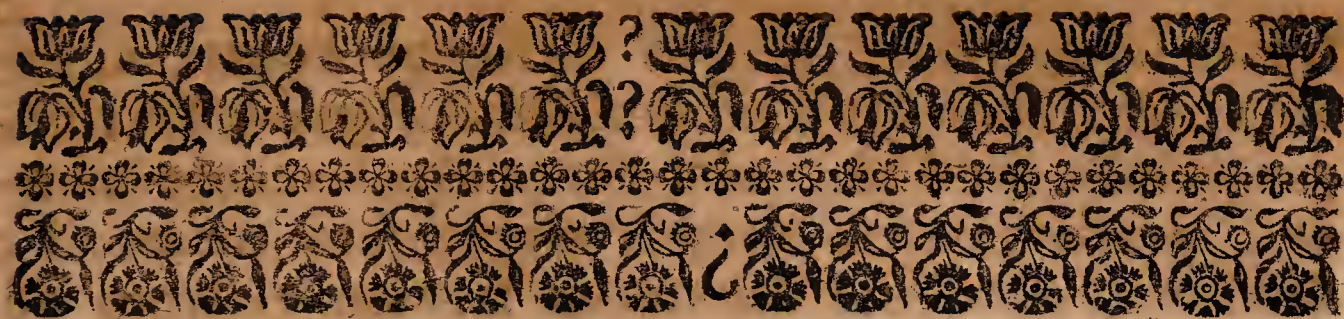 ?
?
¿